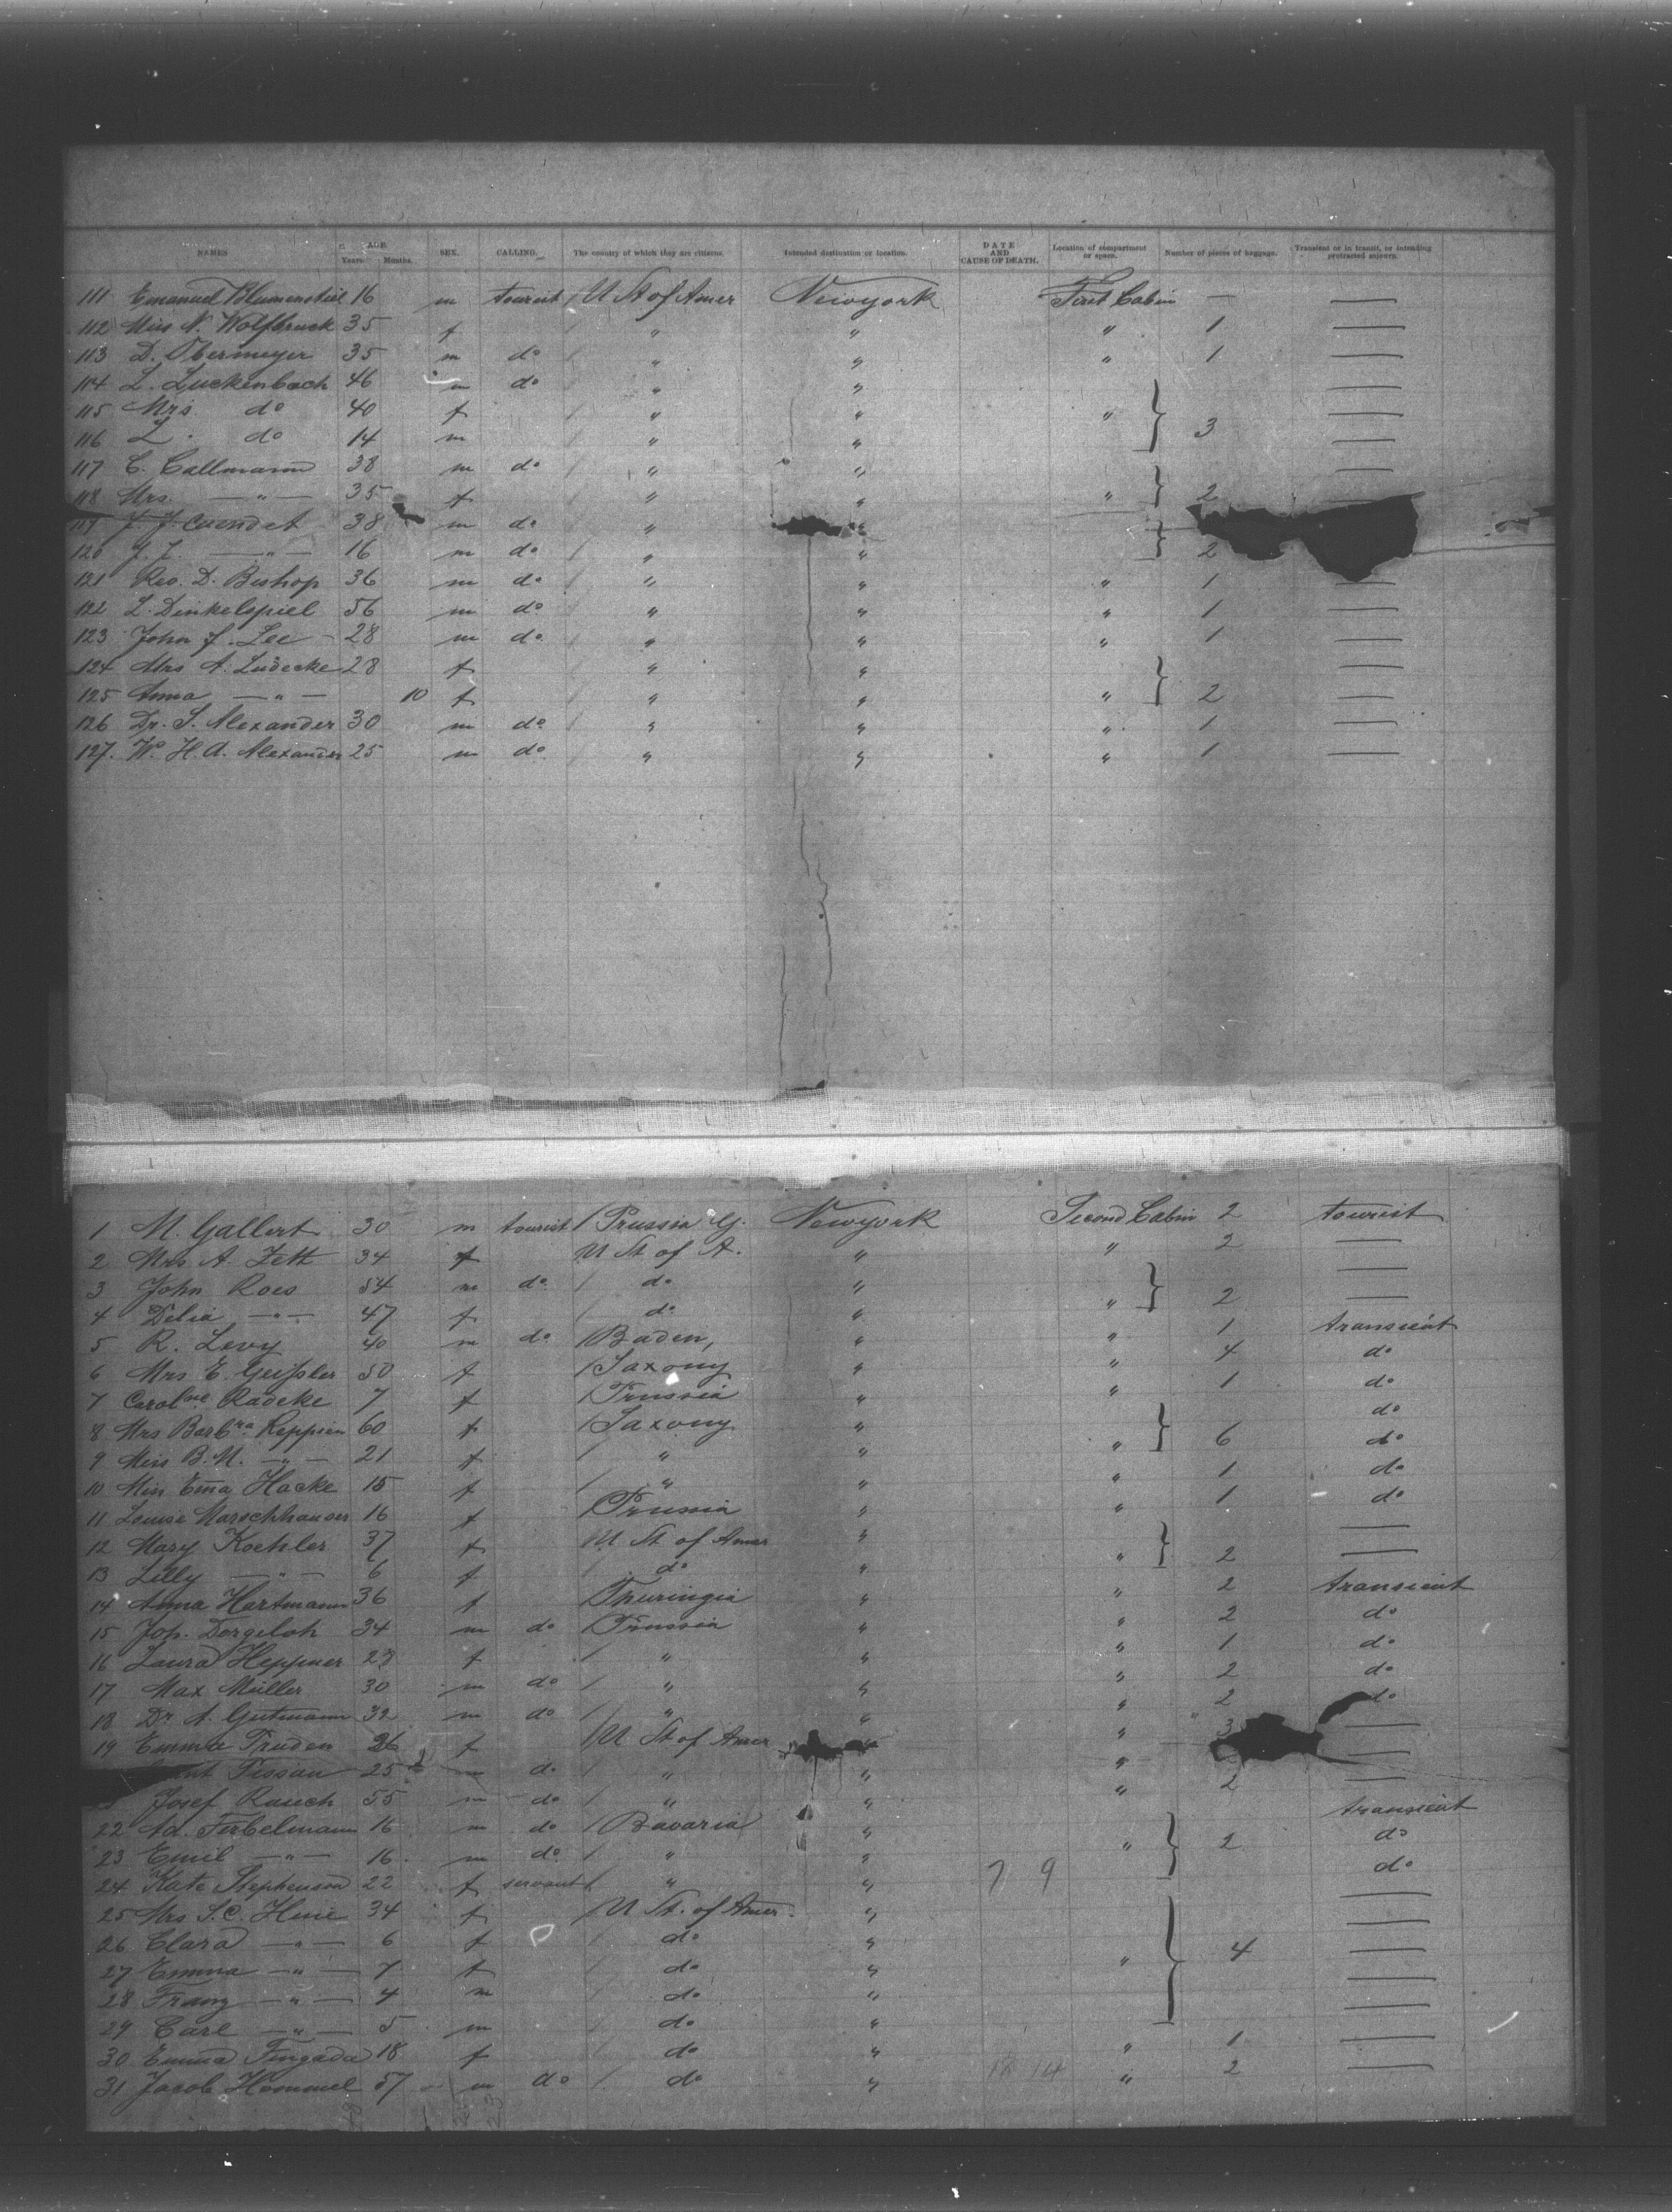 NAMES AGE. Years. Months. SEX. CALLING. The country of which they are citizens. Intended destination or location. DATE AND CAUSE OF DEATH. Location of compartment or space. Number of pieces of baggage. Transient or in transit, or intending protracted sojourn.
111 Emanuel Blumenstiel 16 m tourist / U St of Amer Newyork First Cabin — —
112 Miss N. Wolfbruck 35 f / " " " 1 —
113 D. Obermeyer 35 m do / " " " 1 —
114 L. Luckenbach 46 m do " " —
115 Mrs. do 40 f / " " " } —
116 L. do 14 m / " " 3 —
117 C. Callmann 38 m do / " " —
118 Mrs. — " — 35 f " " " } 2 —
119 J. J. Cuendet 38 m do / " "
120 J. J. — " — 16 m do / " " } 2
121 Rev. D. Bishop 36 m do / " " " 1 —
122 L. Dinkelspiel 56 m do / " " " 1 —
123 John f. Lee 28 m do / " " " 1 —
124 Mrs A. Ludecke 28 f / " " —
125 Anna — " — 10 f / " " " } 2 —
126 Dr. S. Alexander 30 m do / " " " 1 —
127. W. H. A. Alexander 25 m do / " " " 1 —
1 M. Gallert 30 m tourist / Prussia G. Newyork Second Cabin 2 tourist
2 Mrs A. Zett 34 f U St of A. " " 2 —
3 John Roes 54 m do / do " —
4 Delia — " — 47 f / do " " } 2 —
5 R. Levy 40 m do / Baden, " " 1 transient
6 Mrs E. Geißler 50 f / Saxony " " 4 do
7 Carolne Radeke 7 f / Prussia " " 1 do
8 Mrs Barbra Reppien 60 f / Saxony " do
9 Miss B. M. — " — 21 f / " " " } 6 do
10 Miss Ema Hacke 15 f / " " " 1 do
11 Louise Marschhauser 16 f / Prussia " " 1 do
12 Mary Koehler 37 f / U St of Amer " —
13 Lilly — " — 6 f / do " " } 2 —
14 Anna Hartmann 36 f / Thuringia " " 2 transient
15 Joh. Dorgeloh 34 m do / Prussia " " 2 do
16 Laura Heppner 23 f / " " " 1 do
17 Max Müller 30 m do / " " " 2 do
18 Dr A. Gutmann 32 m do / " " " 2 do
19 Emma Pruden 26 f / U St of Amer " " 3 —
Tissau 25 m do / " " " —
Josef Rauch 55 m do / " " " 2 —
22 Ad. Ferbelmann 16 m do / Bavaria " transient
23 Emil — " — 16 m do / " " " } 2 do
24 Kate Stephenson 22 f servant / " " 7 9 do
25 Mrs S. C. Heine 34 f / U St. of Amer. " —
26 Clara — " — 6 f / do " —
27 Emma — " — 7 f / do " " } 4 —
28 Franz — " — 4 m / do " —
29 Carl — " — 5 m / do " —
30 Emma Fingada 18 f / do " " 1 —
31 Jacob Hommel 57 m do / do " 14 " 2 —